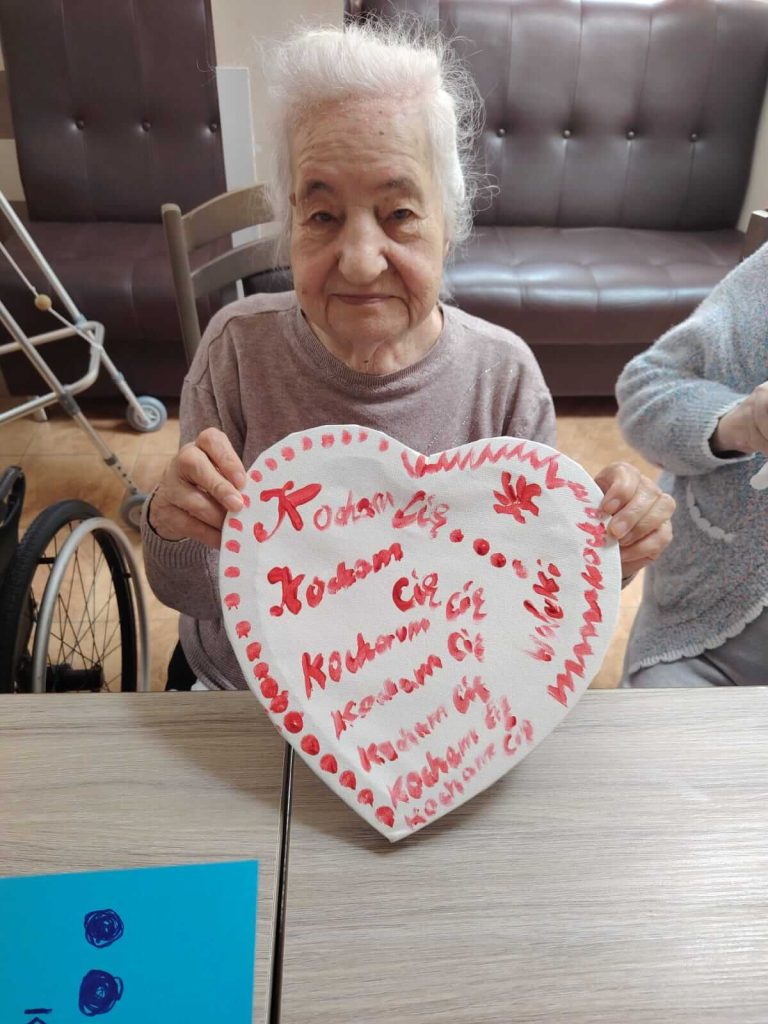 Kocham Cię
Kocham
Cię Cię
Kocham
Kocham Cię
Kocham Cię
Kocham Cię
Kocham Cię